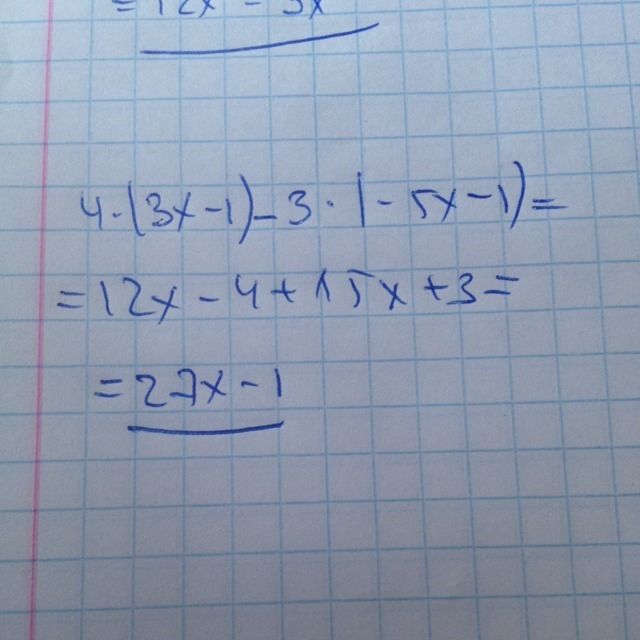 = 12x - 3x
4·(3x-1)-3·(-5x-1)=
=12x-4+15x+3=
=27x-1